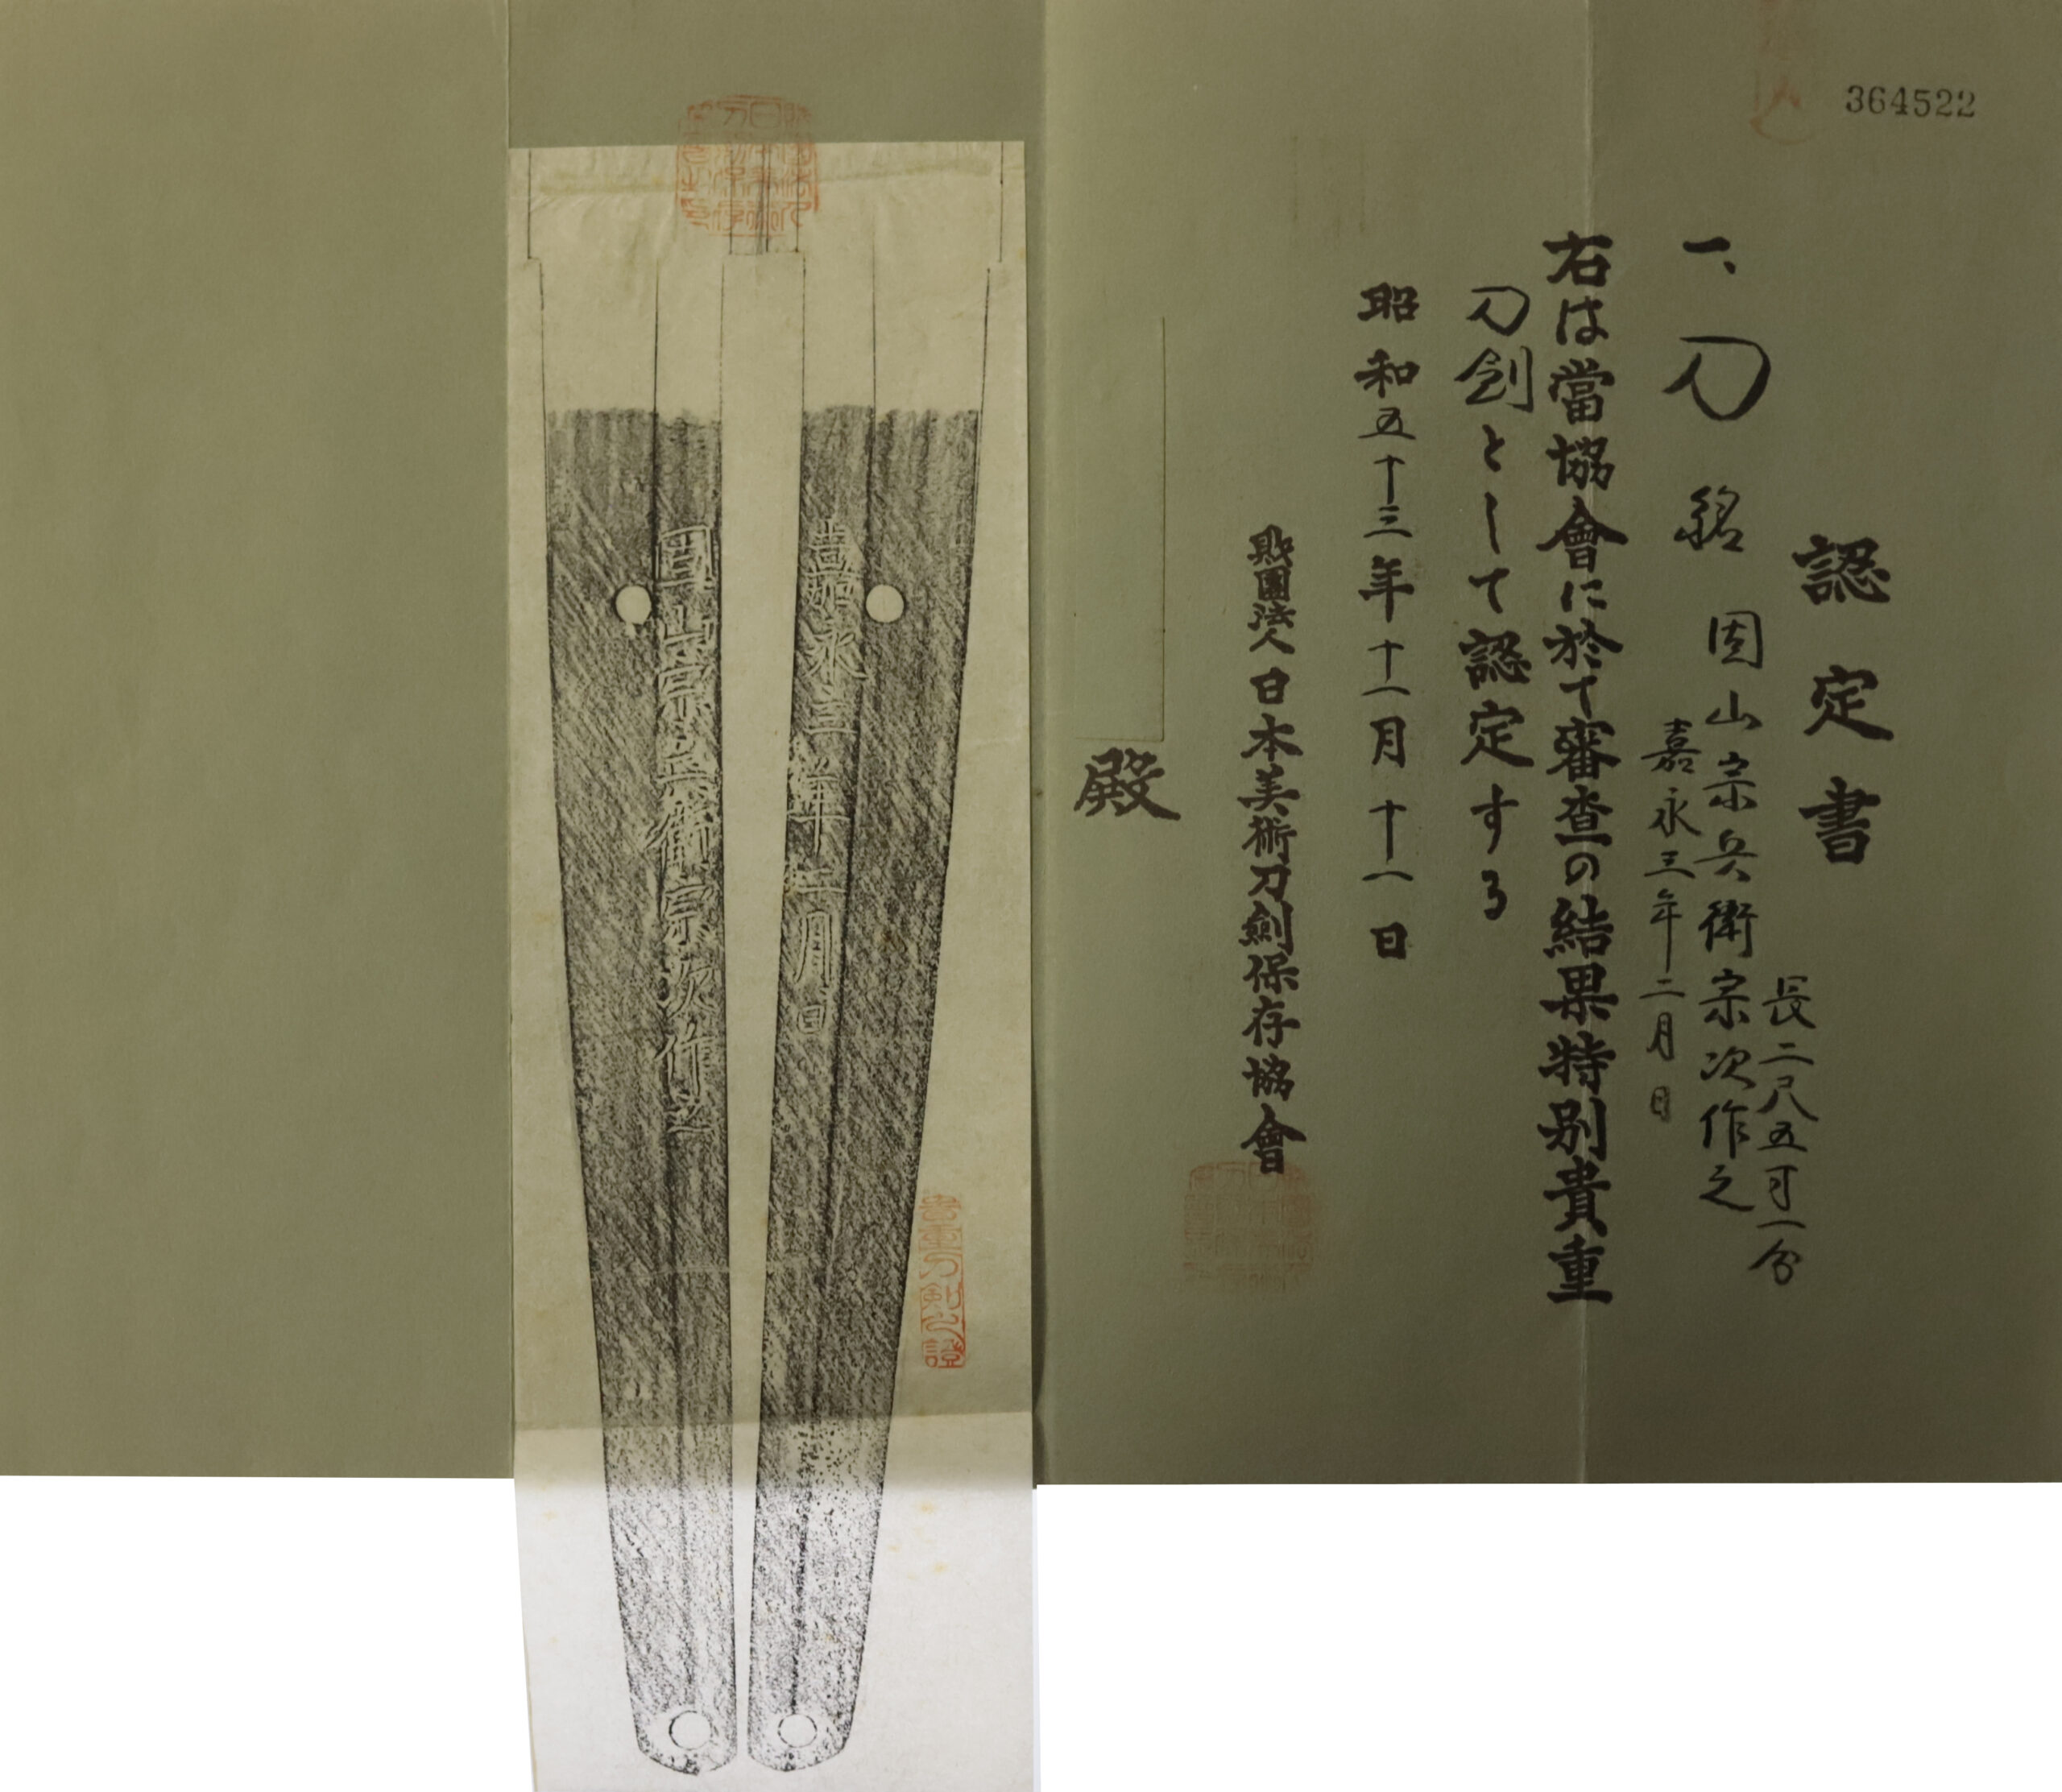 364522
認定書
一、刀 銘 固山宗兵衛宗次作之
長二尺五寸一分
嘉永三年二月日
右は當協會に於て審査の結果特別貴重
刀劍として認定する
昭和五十三年十一月十一日
財團法人日本美術刀劍保存協會
殿
嘉永三年二月日
固山宗兵衛宗次作之
貴重刀剣之證